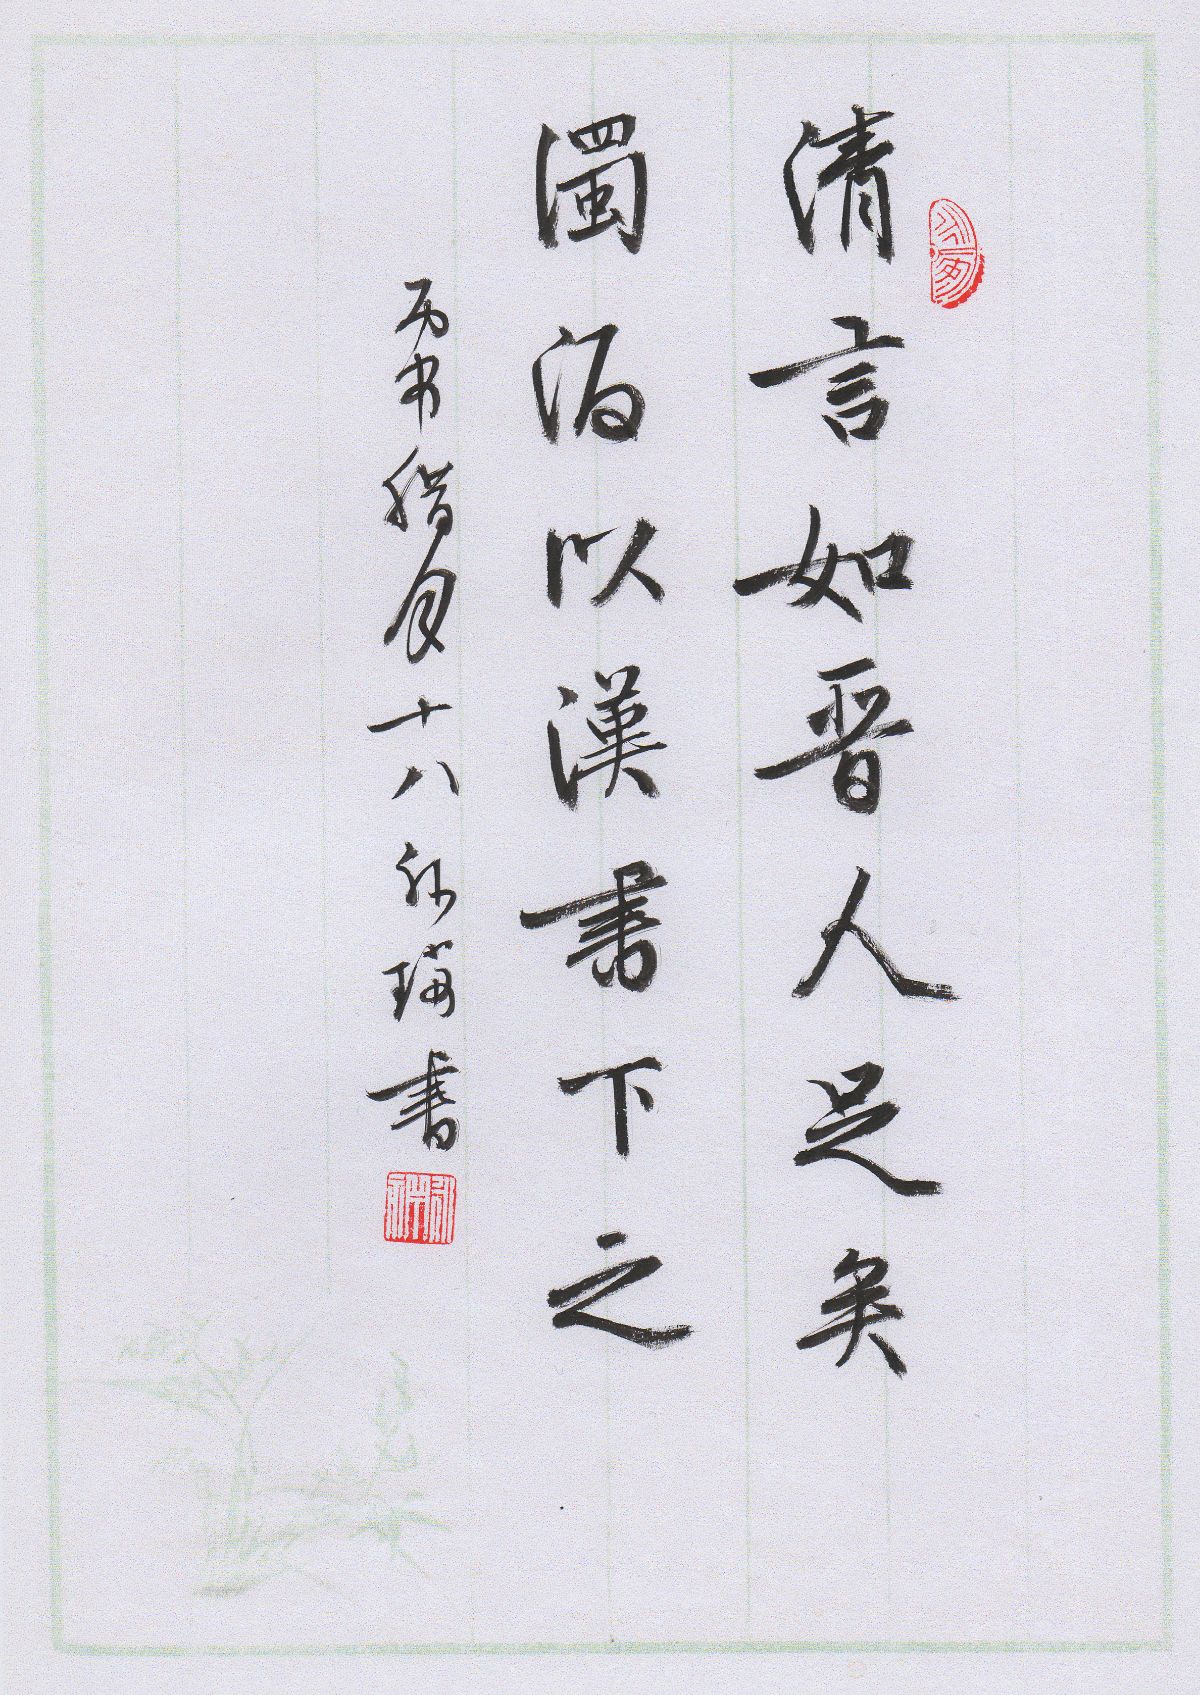 清言如晋人足矣
濁酒以漢書下之
丙申腊月十八 書